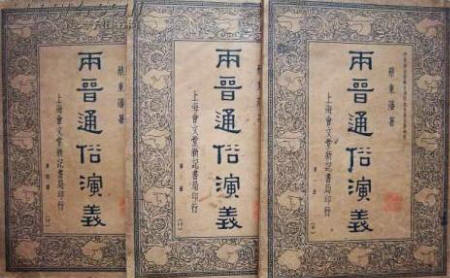 蔡東藩著
兩晉通俗演義
上海會文堂新記書局印行
兩晉通俗演義
上海會文堂新記書局印行
蔡東藩著
兩晉通俗演義
上海會文堂新記書局印行